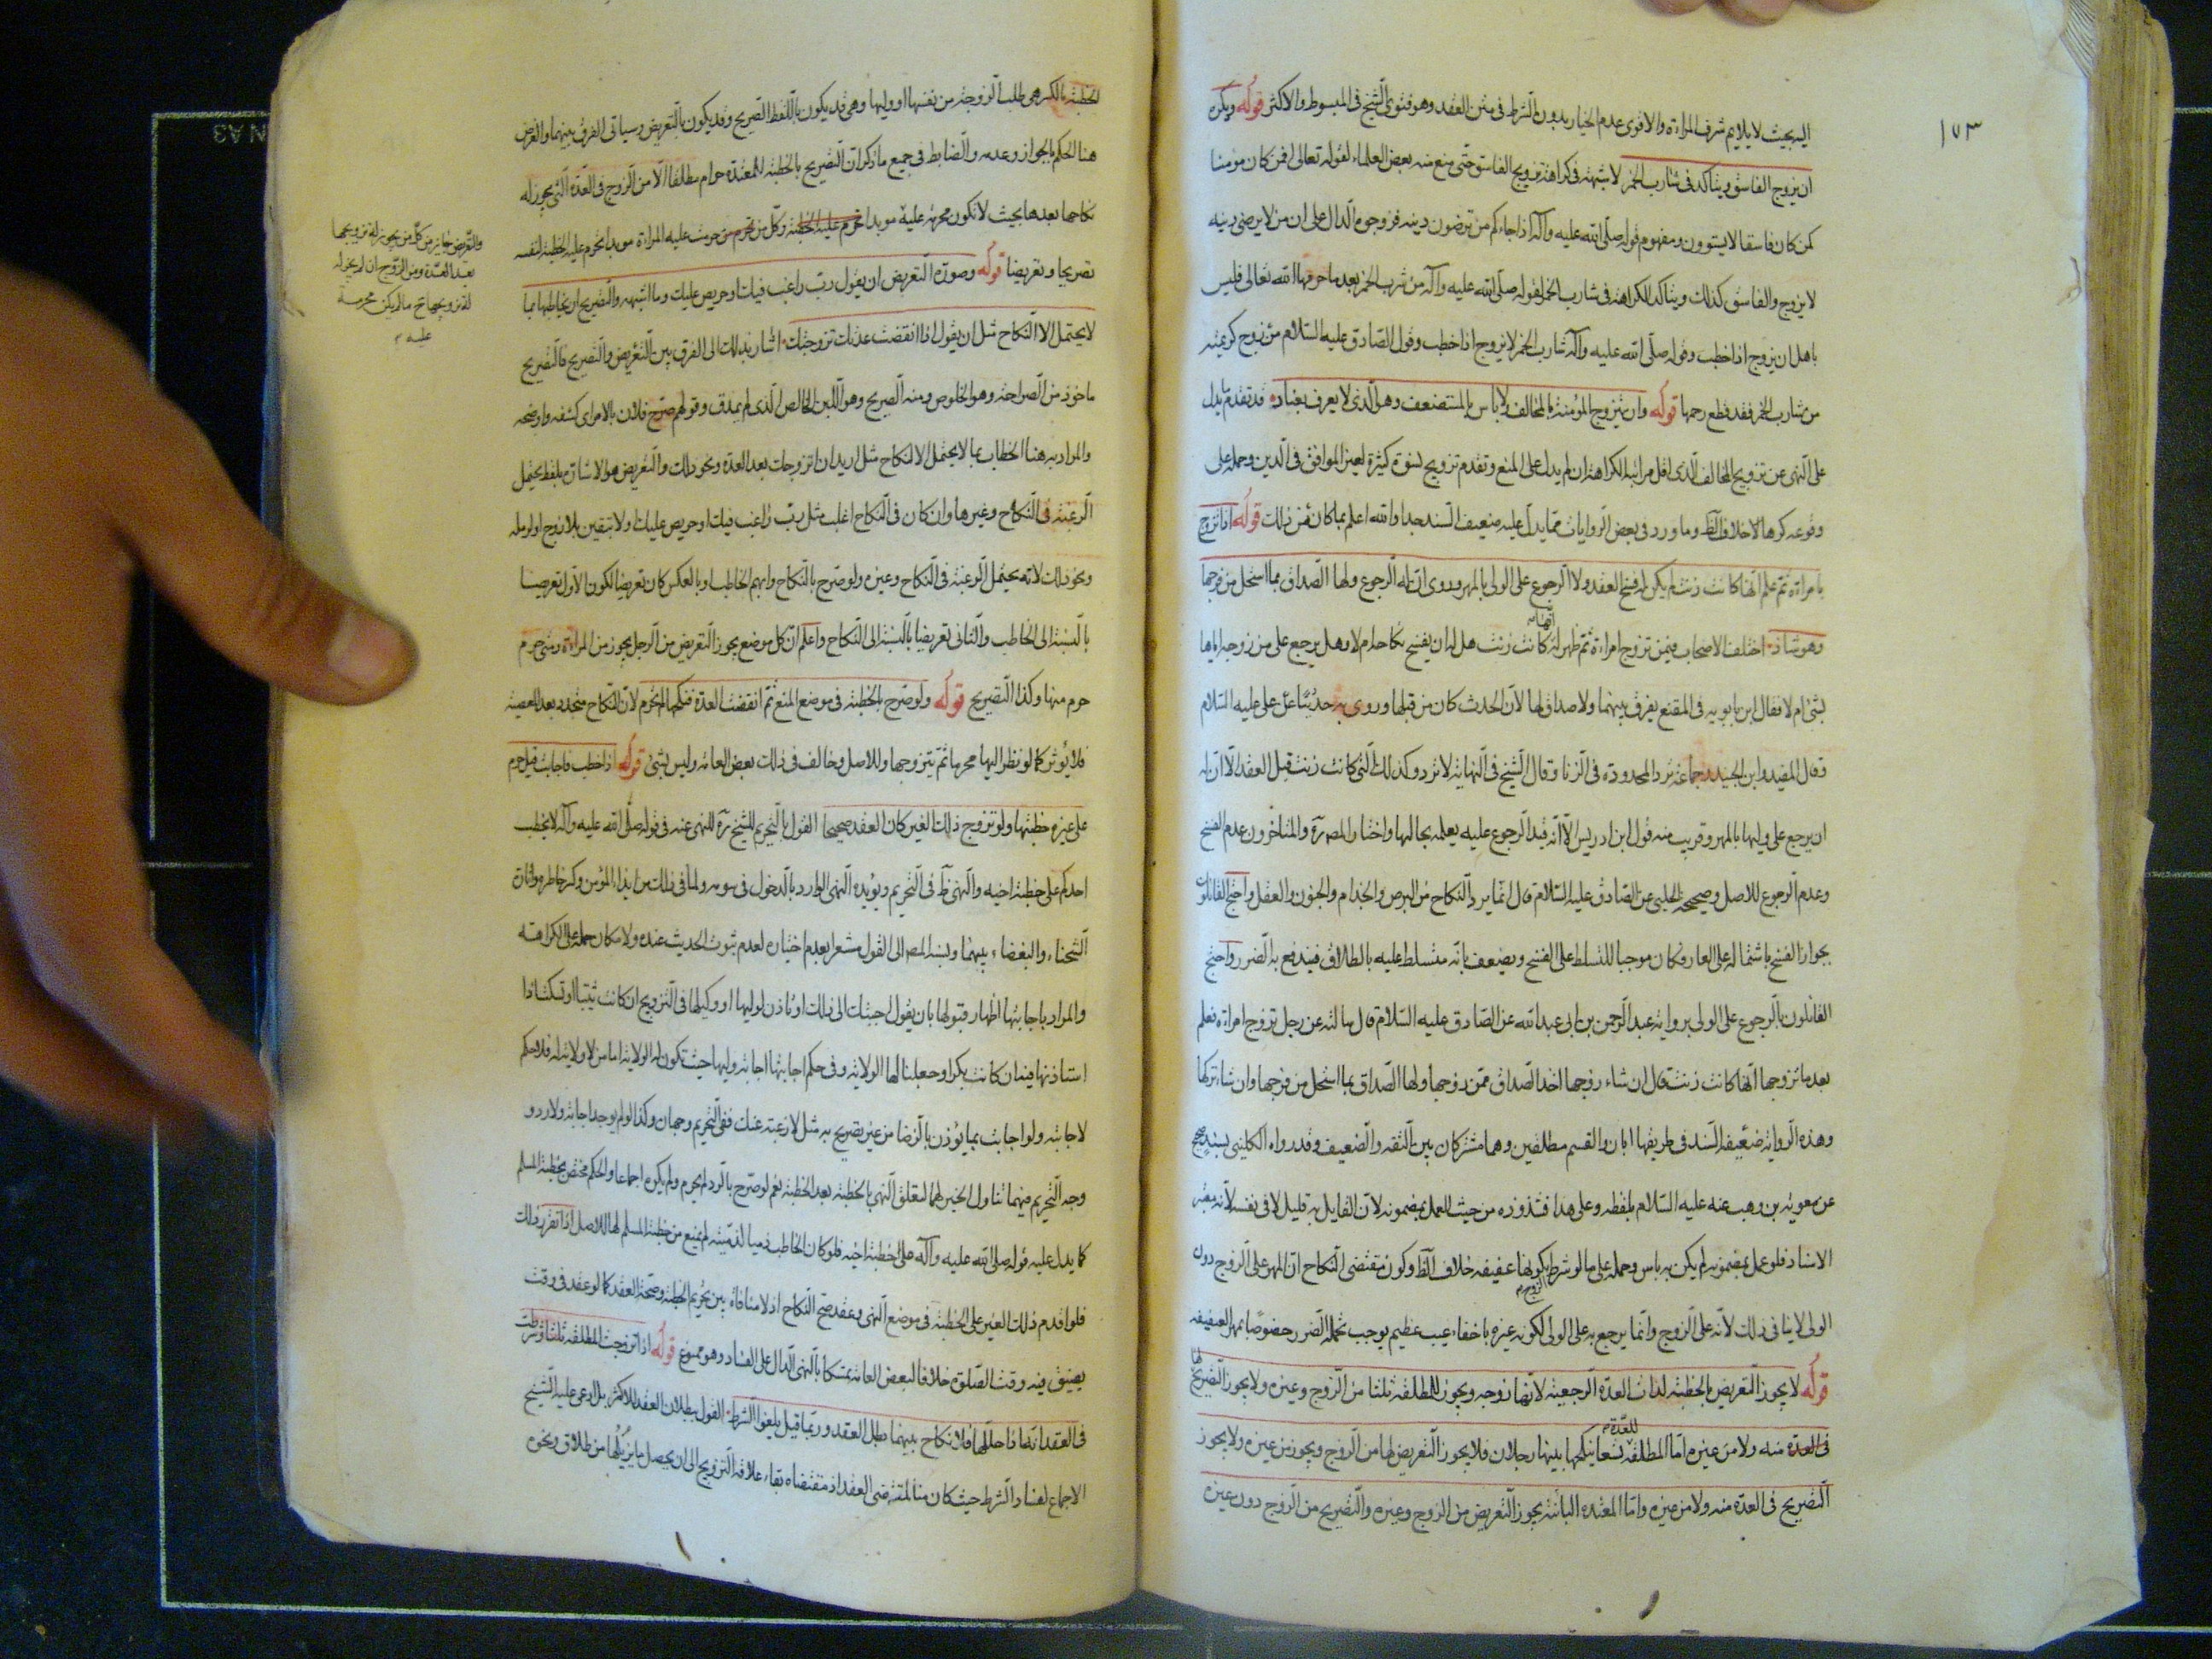 ١٧٣
اليه بحيث لا يلايم شرف المراءة والاقوى عدم الخيار بدون الشرط فى متن العقد وهو فتوى الشيخ فى المبسوط والاكثر قوله ويكره
ان يزوج الفاسق ويتاكد فى شارب الخمر لا شبهة فى كراهة تزويج الفاسق حتى منع منه بعض العلماء لقوله تعالى افمن كان مومنا
كمن كان فاسقا لا يستوون ومفهوم قوله صلى الله عليه وآله اذا جاءكم من ترضون دينه فزوجوه الدال على ان من لا يرضى دينه
لا يزوج والفاسق كذلك ويتاكد الكراهة فى شارب الخمر لقوله صلى الله عليه وآله من شرب الخمر بعد ما حرمها الله تعالى فليس
باهل ان يزوج اذا خطب وقوله صلى الله عليه وآله شارب الخمر لا يزوج اذا خطب وقول الصادق عليه السلام من زوج كريمته
من شارب الخمر فقد قطع رحمها قوله وان تتزوج المؤمنة بالمخالف ولا باس بالمستضعف وهو الذى لا يعرف بعناد قد تقدم ما يدل
على النهى عن تزويج المخالف الذى اقل مراتبه الكراهة ان لم يدل على المنع وتقدم تزويج نسوة كثيرة لغير الموافق فى الدين وحمله على
وقوعه كرها لا خلاف الظ وما ورد فى بعض الروايات مما يدل عليه ضعيف السند جدا والله اعلم بما كان من ذلك قوله اذا تزوج
بامراءة ثم علم انها كانت زنت لم يكن له فسخ العقد ولا الرجوع على الولى بالمهر وروى ان له الرجوع ولها الصداق بما استحل من فرجها
وهو شاذ اختلف الاصحاب فيمن تزوج امراءة ثم ظهر له انها كانت زنت هل له ان يفسخ نكاحها ام لا وهل يرجع على من زوجه اياها
بشئ ام لا فقال ابن بابويه فى المقنع يفرق بينهما ولا صداق لها لان الحدث كان من قبلها وروى به حديثا عن على عليه السلام
وقال المفيد وابن الجنيد وجماعة ترد المحدودة فى الزنا وقال الشيخ فى النهاية لا ترد وكذلك التى كانت زنت قبل العقد الا ان له
ان يرجع على وليها بالمهر وقريب منه قول ابن ادريس الا انه قيد الرجوع عليه بعلمه بحالها واختار المص ره والمتاخرون عدم الفسخ
وعدم الرجوع للاصل وصحيحة الحلبى عن الصادق عليه السلام قال انما يرد النكاح من البرص والجذام والجنون والعفل واحتج القائلون
بجواز الفسخ باشتماله على العار فكان موجبا للتسلط على الفسخ ويضعف بانه متسلط عليه بالطلاق فيندفع به الضرر واحتج
القائلون بالرجوع على الولى برواية عبد الرحمن بن ابى عبد الله عن الصادق عليه السلام قال سالته عن رجل تزوج امراءة فعلم
بعد ما تزوجها انها كانت زنت قال ان شاء زوجها اخذ الصداق ممن زوجها ولها الصداق بما استحل من فرجها وان شاء تركها
وهذه الرواية ضعيفة السند فى طريقها ابان والقسم مطلقين وهما مشتركان بين الثقة والضعيف وقد رواه الكلينى بسند صحيح
عن معوية بن وهب عنه عليه السلام بلفظه وعلى هذا فشذوذه من حيث العمل بمضمونه لان القايل به قليل لا فى نفسه لانه معتبر
الاسناد فلو عمل بمضمونه لم يكن به باس وحمله على ما لو شرط كونها عفيفة خلاف الظ وكون مقتضى النكاح ان المهر على الزوج دون
الولى لا ينافى ذلك لانه على الزوج وانما يرجع به على الولى لكونه غره باخفاء عيب عظيم يوجب تحمله الضرر خصوصا بمهر العفيفة
قوله لا يجوز التعريض بالخطبة لذات العدة الرجعية لانها زوجه ويجوز للمطلقة ثلثا من الزوج وغيره ولا يجوز التصريح لها
فى العدة منه ولا من غيره اما المطلقة تسعا للعدة ينكحها بينها رجلان فلا يجوز التعريض لها من الزوج ويجوز من غيره ولا يجوز
التصريح فى العدة منه ولا من غيره واما المعتدة البائنة يجوز التعريض من الزوج وغيره والتصريح من الزوج دون غيره
الخطبة بالكسر هى طلب الزوجة من نفسها او وليها وهى قد يكون باللفظ الصريح وقد يكون بالتعريض وسياتى الفرق بينهما والغرض
هنا الحكم بالجواز وعدمه والضابط فى جميع ما ذكر ان التصريح بالخطبة للمعتدة حرام مطلقا الا من الزوج فى العدة التى يجوز له
نكاحها بعدها بحيث لا تكون محرمة عليه موبدا وكل من حرمت عليه المراءة موبدا تحرم عليه الخطبة لنفسه
تصريحا وتعريضا قوله وصورة التعريض ان يقول رب راغب فيك او حريص عليك وما اشبهه والتصريح ان يخاطبها بما
لا يحتمل الا النكاح مثل ان يقول اذا انقضت عدتك تزوجتك اشار بذلك الى الفرق بين التعريض والتصريح فالتصريح
ماخوذ من الصراحة وهو الخلوص ومنه الصريح وهو اللبن الخالص الذى لم يمذق وقولهم صرح فلان بالامر اى كشفه واوضحه
والمراد به هنا الخطاب بما لا يحتمل الا النكاح مثل اريد ان اتزوجك بعد العدة ونحو ذلك والتعريض هو الاشارة بلفظ يحتمل
الرغبة فى النكاح وغيرها وان كان فى النكاح اغلب مثل رب راغب فيك او حريص عليك او لا تبقين بلا زوج او لرملة
ونحو ذلك لانه يحتمل الرغبة فى النكاح وغيره ولو صرح بالنكاح وابهم الخاطب او بالعكس كان تعريضا لكون الاول تعريضا
بالنسبة الى الخاطب والثانى تعريضا بالنسبة الى النكاح واعلم ان كل موضع يجوز التعريض من الرجل يجوز من المراءة ومتى حرم
حرم منها وكذا التصريح قوله ولو صرح بالخطبة فى موضع المنع ثم انقضت العدة فنكحها لم تحرم لان النكاح متجدد بعد المعصية
فلا يؤثر كما لو نظر اليها محرما ثم يتزوجها وللاصل وخالف فى ذلك بعض العامة وليس بشئ قوله اذا خطب فاجابت قيل حرم
على غيره خطبتها ولو تزوج ذلك الغير كان العقد صحيحا القول بالتحريم للشيخ ره للنهى عنه فى قوله صلى الله عليه وآله لا يخطب
احدكم على خطبة اخيه والنهى ظ فى التحريم ويؤيده النهى الوارد بالدخول فى سومه ولما فى ذلك من ايذاء المؤمن وكسر خاطره واثارة
الشحناء والبغضاء بينهما ونسبه المص الى القول مشعر بعدم اختياره لعدم ثبوت الحديث عنده ولامكان حمله على الكراهة
والمراد باجابتها اظهار قبولها بان يقول اجبتك الى ذلك او تاذن لوليها او وكيلها فى التزويج ان كانت ثيبا او تسكت اذا
استاذنها فيه ان كانت بكرا وجعلنا لها الولاية وفى حكم اجابتها اجابة وليها حيث تكون له الولاية اما من لا ولاية له فلا حكم
لاجابته ولو اجابت بما يؤذن بالرضا من غير تصريح به مثل لا رغبة عنك ففى التحريم وجهان وكذا لو لم يوجد اجابة ولا رد و
وجه التحريم فيهما تناول الخبر لهما لتعلق النهى بالخطبة بعد الخطبة نعم لو صرح بالرد لم يحرم ولم يكره اجماعا والحكم مختص بخطبة المسلم
كما يدل عليه قوله صلى الله عليه وآله على خطبة اخيه فلو كان الخاطب ذميا لذمية لم يمنع من خطبة المسلم لها للاصل اذا تقرر ذلك
فلو اقدم ذلك الغير على الخطبة فى موضع النهى وعقد صح النكاح اذ لا منافاة بين تحريم الخطبة وصحة العقد كما لو عقد فى وقت
يضيق فيه وقت الصلوة خلافا لبعض العامة تمسكا بالنهى الدال على الفساد وهو ممنوع قوله اذا تزوجت المطلقة ثلثا وشرطت
فى العقد انه اذا حللها فلا نكاح بينهما بطل العقد وربما قيل يلغوا الشرط القول ببطلان العقد للاكثر بل ادعى عليه الشيخ
الاجماع لفساد الشرط حيث كان منافا لمقتضى العقد اذ مقتضاه بقاء علاقة التزويج الى ان يحصل ما يزيلها من طلاق ونحوه
والتعريض جايز من كل من يجوز له تزويجها
بعد العدة ومن الزوج ان لم يجز له
تزويجها ح ما لم يكن محرمة
عليه